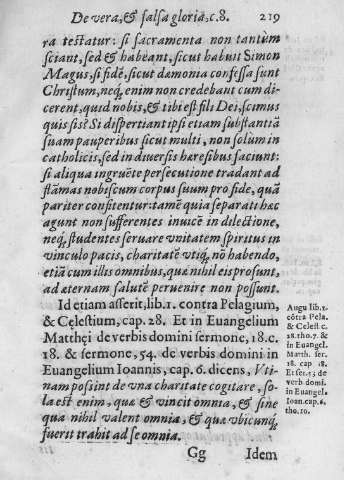 De vera, & falsa gloria, c. 8. 219
ra testatur: si sacramenta non tantùm
sciant, sed & habeant, sicut habuit Simon
Magus, si fidē, sicut dæmonia confessa sunt
Christum, neq, enim non credebant cum di-
cerent, quid nobis, & tibi est fili Dei, scimus
quis sis? Si dispertiant ipsi etiam substantiā
suam pauperibus sicut multi, non solùm in
catholicis, sed in diversis hæresibus faciunt:
si aliqua ingruēte persecutione tradant ad
flāmas nobiscum corpus suum pro fide, quā
pariter confitentur: tamē quia separati hæc
agunt non sufferentes inuicē in dilectione,
neq, studentes seruare vnitatem spiritus in
vinculo pacis, charitatē vtiq, nō habendo,
etiā cum illis omnibus, quæ nihil eis prosunt,
ad æternam salutē peruenire non possunt.
Id etiam asserit, lib. 1. contra Pelagium,
& Cęlestium, cap. 28. Et in Euangelium
Matthęi de verbis domini sermone, 18. c.
18. & sermone, 54. de verbis domini in
Euangelium Ioannis, cap. 6. dicens, Vti-
nam possint de vna charitate cogitare, so-
la est enim, quæ & vincit omnia, & sine
qua nihil valent omnia, & quæ vbicunq,
fuerit trahit ad se omnia.
Gg Idem
Augu lib. 1.
cōtra Pela.
& Celest c.
28. tho. 7. &
in Euangel.
Matth. ser.
18. cap 18.
Et ser. 53 de
verb domi.
in Euangel.
Ioan. cap. 6.
tho. 10.